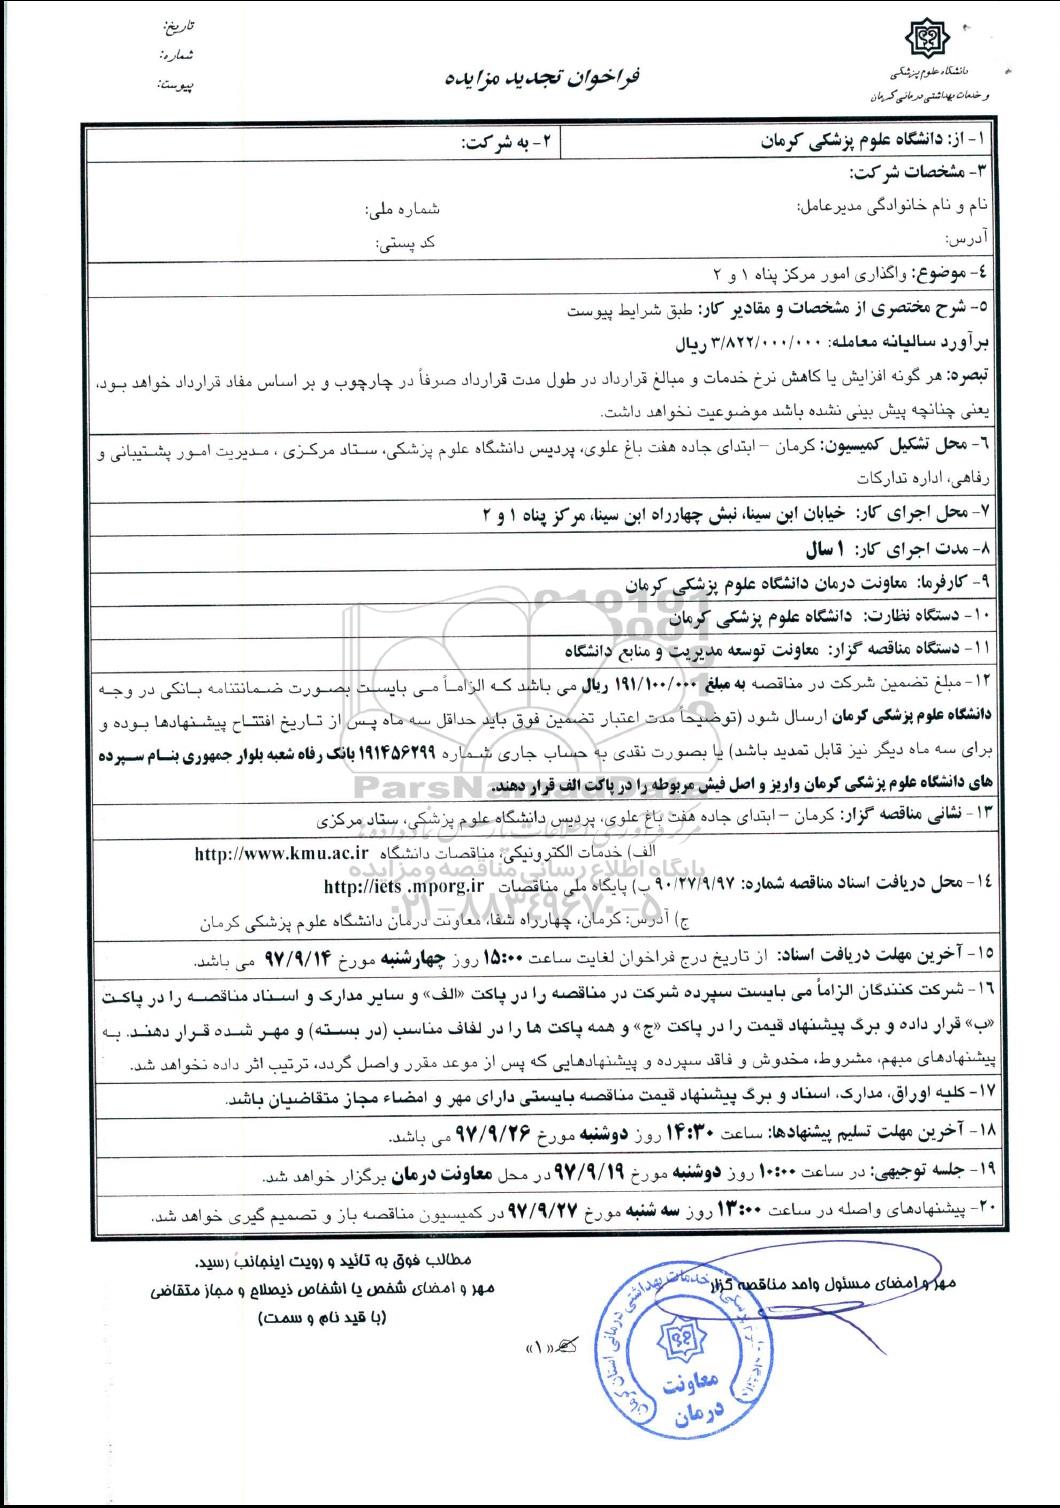 تاریخ:
شماره:
پیوست:
دانشگاه علوم پزشکی
و خدمات بهداشتی درمانی کرمان
فراخوان تجدید مزایده
۱- از: دانشگاه علوم پزشکی کرمان
۲- به شرکت:
۳- مشخصات شرکت:
نام و نام خانوادگی مدیرعامل:
شماره ملی:
آدرس:
کد پستی:
۴- موضوع: واگذاری امور مرکز پناه ۱ و ۲
۵- شرح مختصری از مشخصات و مقادیر کار: طبق شرایط پیوست
برآورد سالیانه معامله: ۳/۸۲۲/۰۰۰/۰۰۰ ریال
تبصره: هر گونه افزایش یا کاهش نرخ خدمات و مبالغ قرارداد در طول مدت قرارداد صرفاً در چارچوب و بر اساس مفاد قرارداد خواهد بود،
یعنی چنانچه پیش بینی نشده باشد موضوعیت نخواهد داشت.
۶- محل تشکیل کمیسیون: کرمان – ابتدای جاده هفت باغ علوی، پردیس دانشگاه علوم پزشکی، ستاد مرکزی ، مدیریت امور پشتیبانی و
رفاهی، اداره تدارکات
۷- محل اجرای کار: خیابان ابن سینا، نبش چهارراه ابن سینا، مرکز پناه ۱ و ۲
۸- مدت اجرای کار: ۱ سال
۹- کارفرما: معاونت درمان دانشگاه علوم پزشکی کرمان
۱۰- دستگاه نظارت: دانشگاه علوم پزشکی کرمان
۱۱- دستگاه مناقصه گزار: معاونت توسعه مدیریت و منابع دانشگاه
۱۲- مبلغ تضمین شرکت در مناقصه به مبلغ ۱۹۱/۱۰۰/۰۰۰ ریال می باشد که الزاماً می بایست بصورت ضمانتنامه بانکی در وجه
دانشگاه علوم پزشکی کرمان ارسال شود (توضیحاً مدت اعتبار تضمین فوق باید حداقل سه ماه پس از تاریخ افتتاح پیشنهادها بوده و
برای سه ماه دیگر نیز قابل تمدید باشد) یا بصورت نقدی به حساب جاری شماره ۱۹۱۴۵۶۲۹۹ بانک رفاه شعبه بلوار جمهوری بنام سپرده
های دانشگاه علوم پزشکی کرمان واریز و اصل فیش مربوطه را در پاکت الف قرار دهند.
۱۳- نشانی مناقصه گزار: کرمان – ابتدای جاده هفت باغ علوی، پردیس دانشگاه علوم پزشکی، ستاد مرکزی
الف) خدمات الکترونیکی، مناقصات دانشگاه http://www.kmu.ac.ir
۱۴- محل دریافت اسناد مناقصه شماره: ۹۰/۲۷/۹/۹۷ ب) پایگاه ملی مناقصات http://iets .mporg.ir
ج) آدرس: کرمان، چهارراه شفا، معاونت درمان دانشگاه علوم پزشکی کرمان
۱۵- آخرین مهلت دریافت اسناد: از تاریخ درج فراخوان لغایت ساعت ۱۵:۰۰ روز چهارشنبه مورخ ۹۷/۹/۱۴ می باشد.
۱۶- شرکت کنندگان الزاماً می بایست سپرده شرکت در مناقصه را در پاکت «الف» و سایر مدارک و اسناد مناقصه را در پاکت
«ب» قرار داده و برگ پیشنهاد قیمت را در پاکت «ج» و همه پاکت ها را در لفاف مناسب (در بسته) و مهر شده قرار دهند. به
پیشنهادهای مبهم، مشروط، مخدوش و فاقد سپرده و پیشنهادهایی که پس از موعد مقرر واصل گردد، ترتیب اثر داده نخواهد شد.
۱۷- کلیه اوراق، مدارک، اسناد و برگ پیشنهاد قیمت مناقصه بایستی دارای مهر و امضاء مجاز متقاضیان باشد.
۱۸- آخرین مهلت تسلیم پیشنهادها: ساعت ۱۴:۳۰ روز دوشنبه مورخ ۹۷/۹/۲۶ می باشد.
۱۹- جلسه توجیهی: در ساعت ۱۰:۰۰ روز دوشنبه مورخ ۹۷/۹/۱۹ در محل معاونت درمان برگزار خواهد شد.
۲۰- پیشنهادهای واصله در ساعت ۱۳:۰۰ روز سه شنبه مورخ ۹۷/۹/۲۷ در کمیسیون مناقصه باز و تصمیم گیری خواهد شد.
مهر و امضای مسئول واحد مناقصه گزار
مطالب فوق به تائید و رویت اینجانب رسید.
مهر و امضای شخص یا اشخاص ذیصلاح و مجاز متقاضی
(با قید نام و سمت)
«۱»
معاونت
درمان
ParsNamadData
پایگاه اطلاع رسانی مناقصه و مزایده
۰۲۱-۸۸۳۴۹۶۷۰-۵